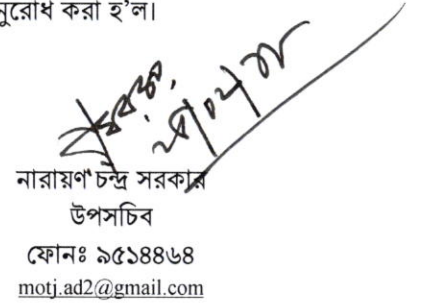 নুরোধ করা হ'ল।
নারায়ণ চন্দ্র সরকার
উপসচিব
ফোনঃ ৯৫১৪৪৬৪
motj.ad2@gmail.com